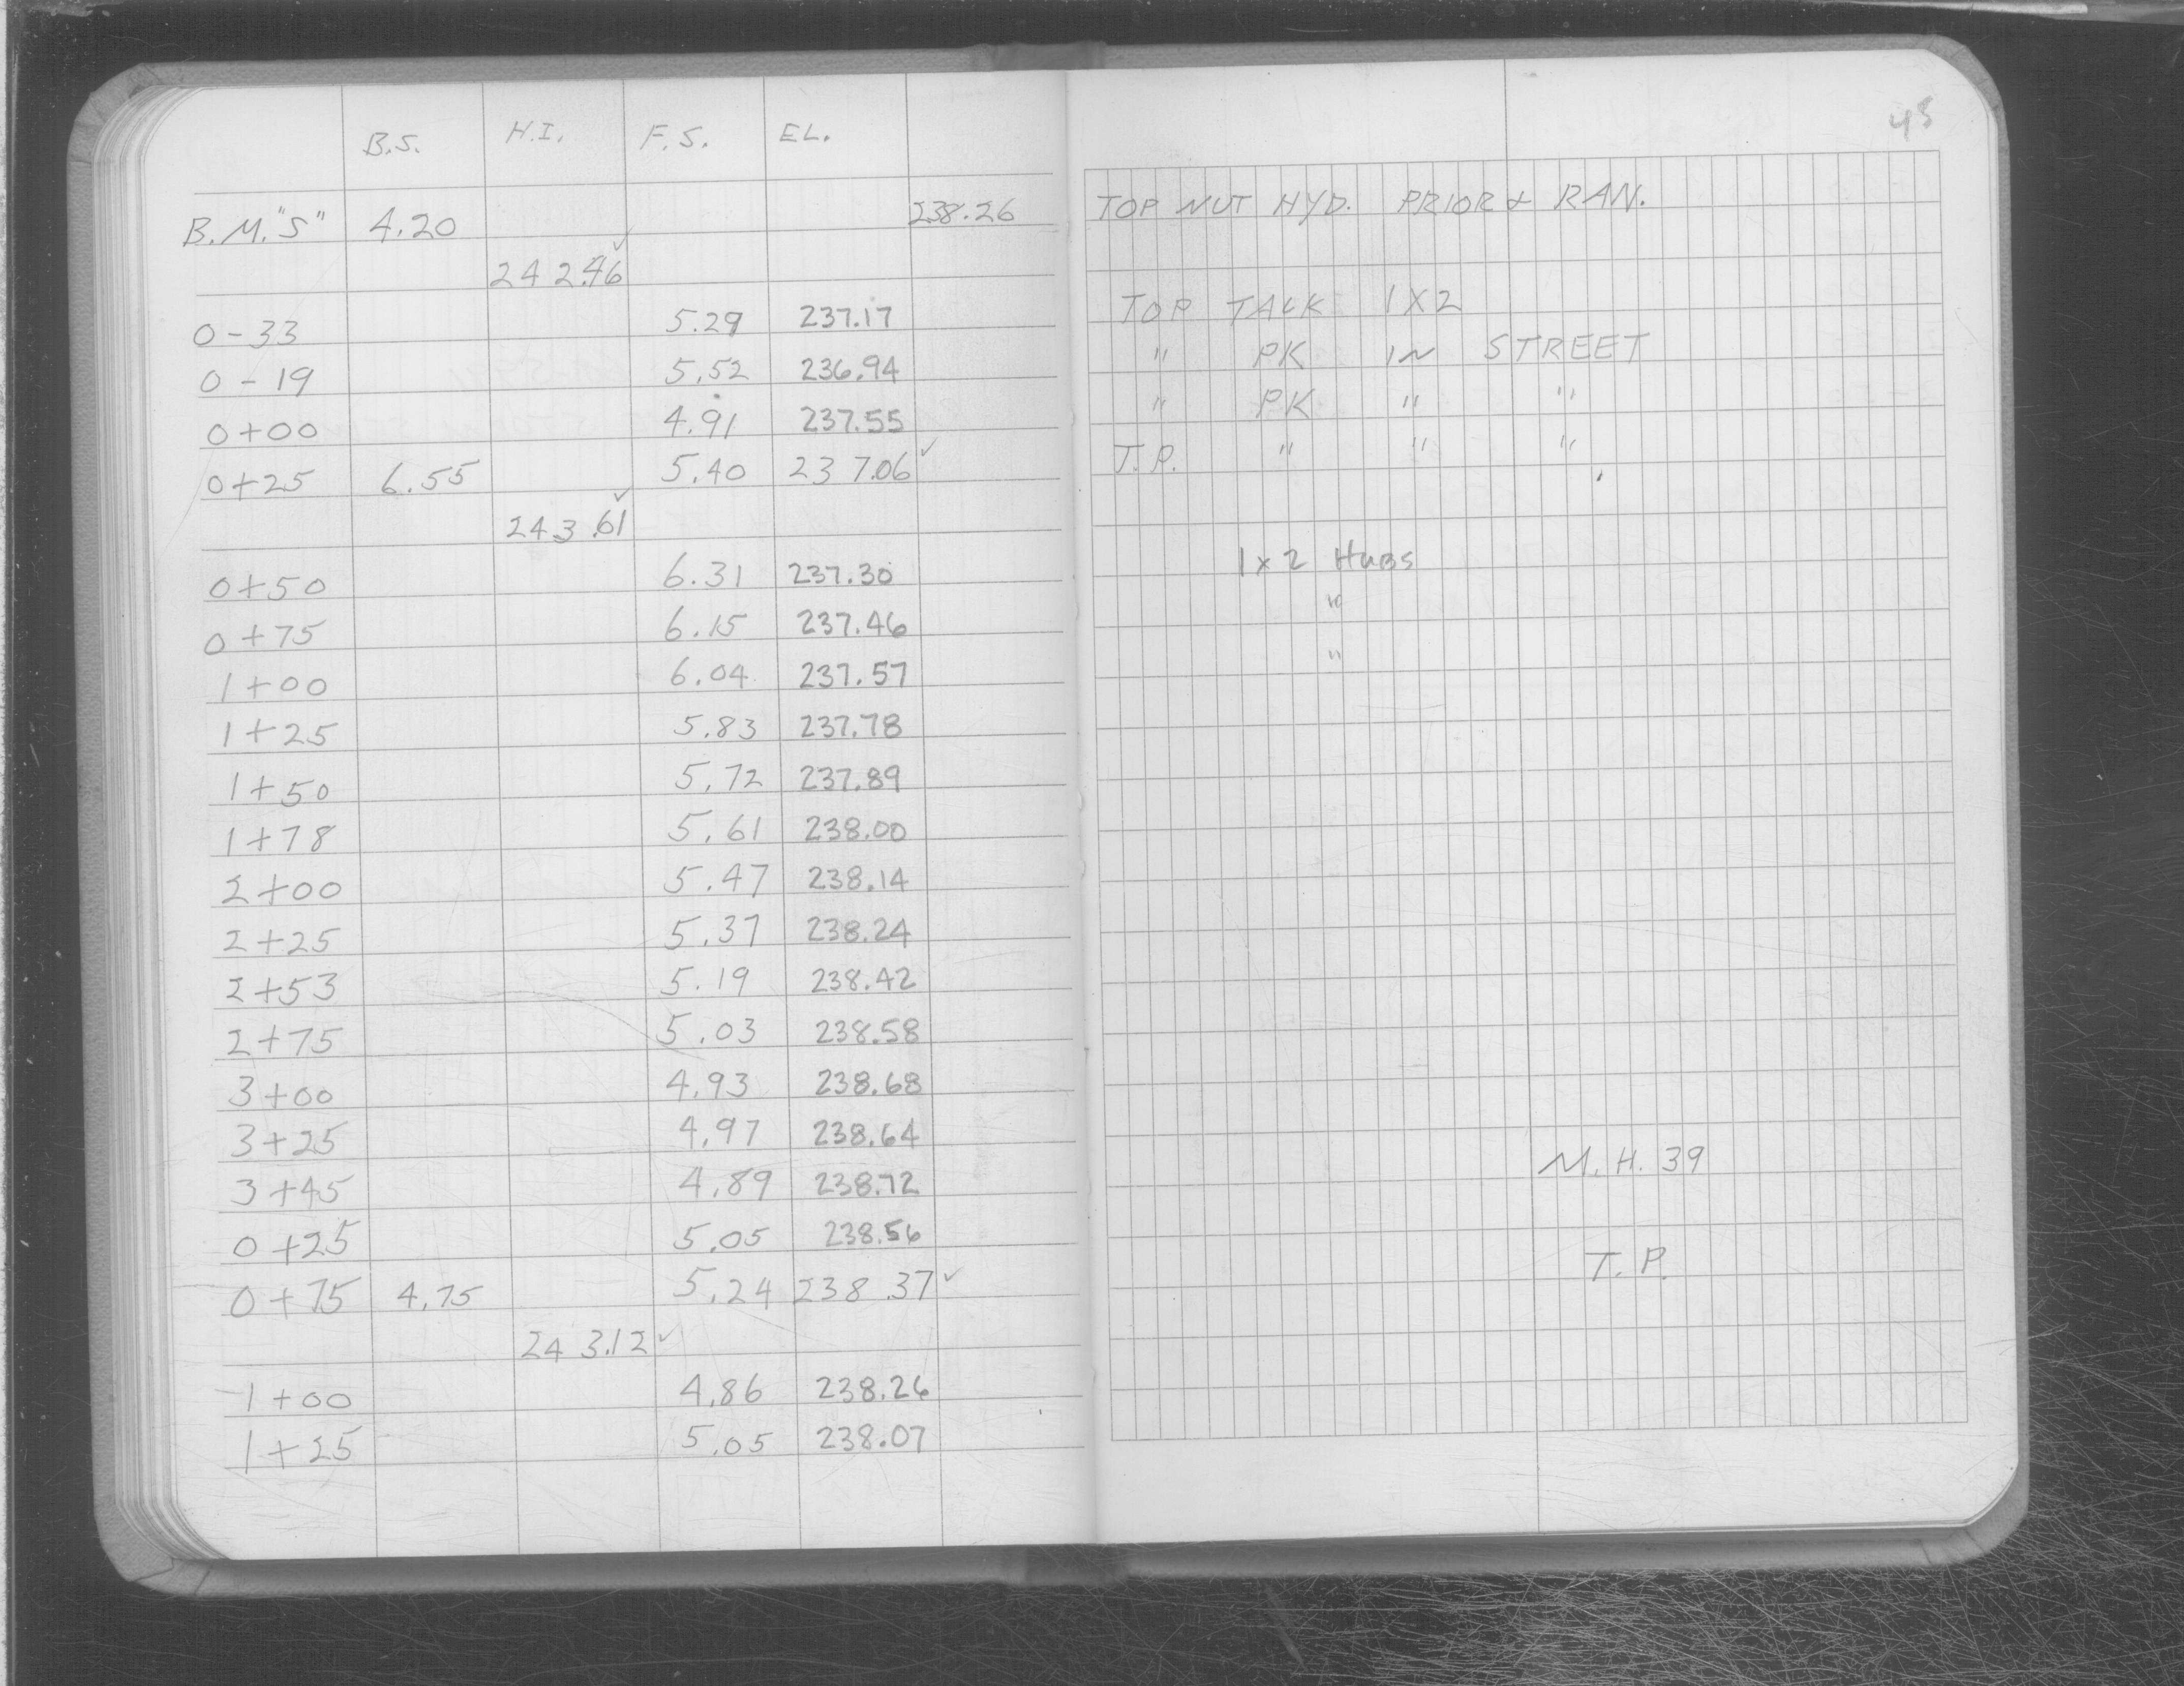 B.S. H.I. F.S. EL.
45
B.M."S" 4.20 238.26 TOP NUT HYD. PRIOR & RAN.
242.46 ✓
0-33 5.29 237.17 TOP TALK 1X2
0-19 5.52 236.94 " PK IN STREET
0+00 4.91 237.55 " PK " "
0+25 6.55 5.40 237.06 ✓ T.P. " " "
243.61 ✓
0+50 6.31 237.30 1x2 HUBS
0+75 6.15 237.46 "
1+00 6.04 237.57 "
1+25 5.83 237.78
1+50 5.72 237.89
1+78 5.61 238.00
2+00 5.47 238.14
2+25 5.37 238.24
2+53 5.19 238.42
2+75 5.03 238.58
3+00 4.93 238.68
3+25 4.97 238.64
3+45 4.89 238.72 M.H. 39
0+25 5.05 238.56
0+75 4.75 5.24 238.37 ✓ T.P.
243.12 ✓
1+00 4.86 238.26
1+25 5.05 238.07